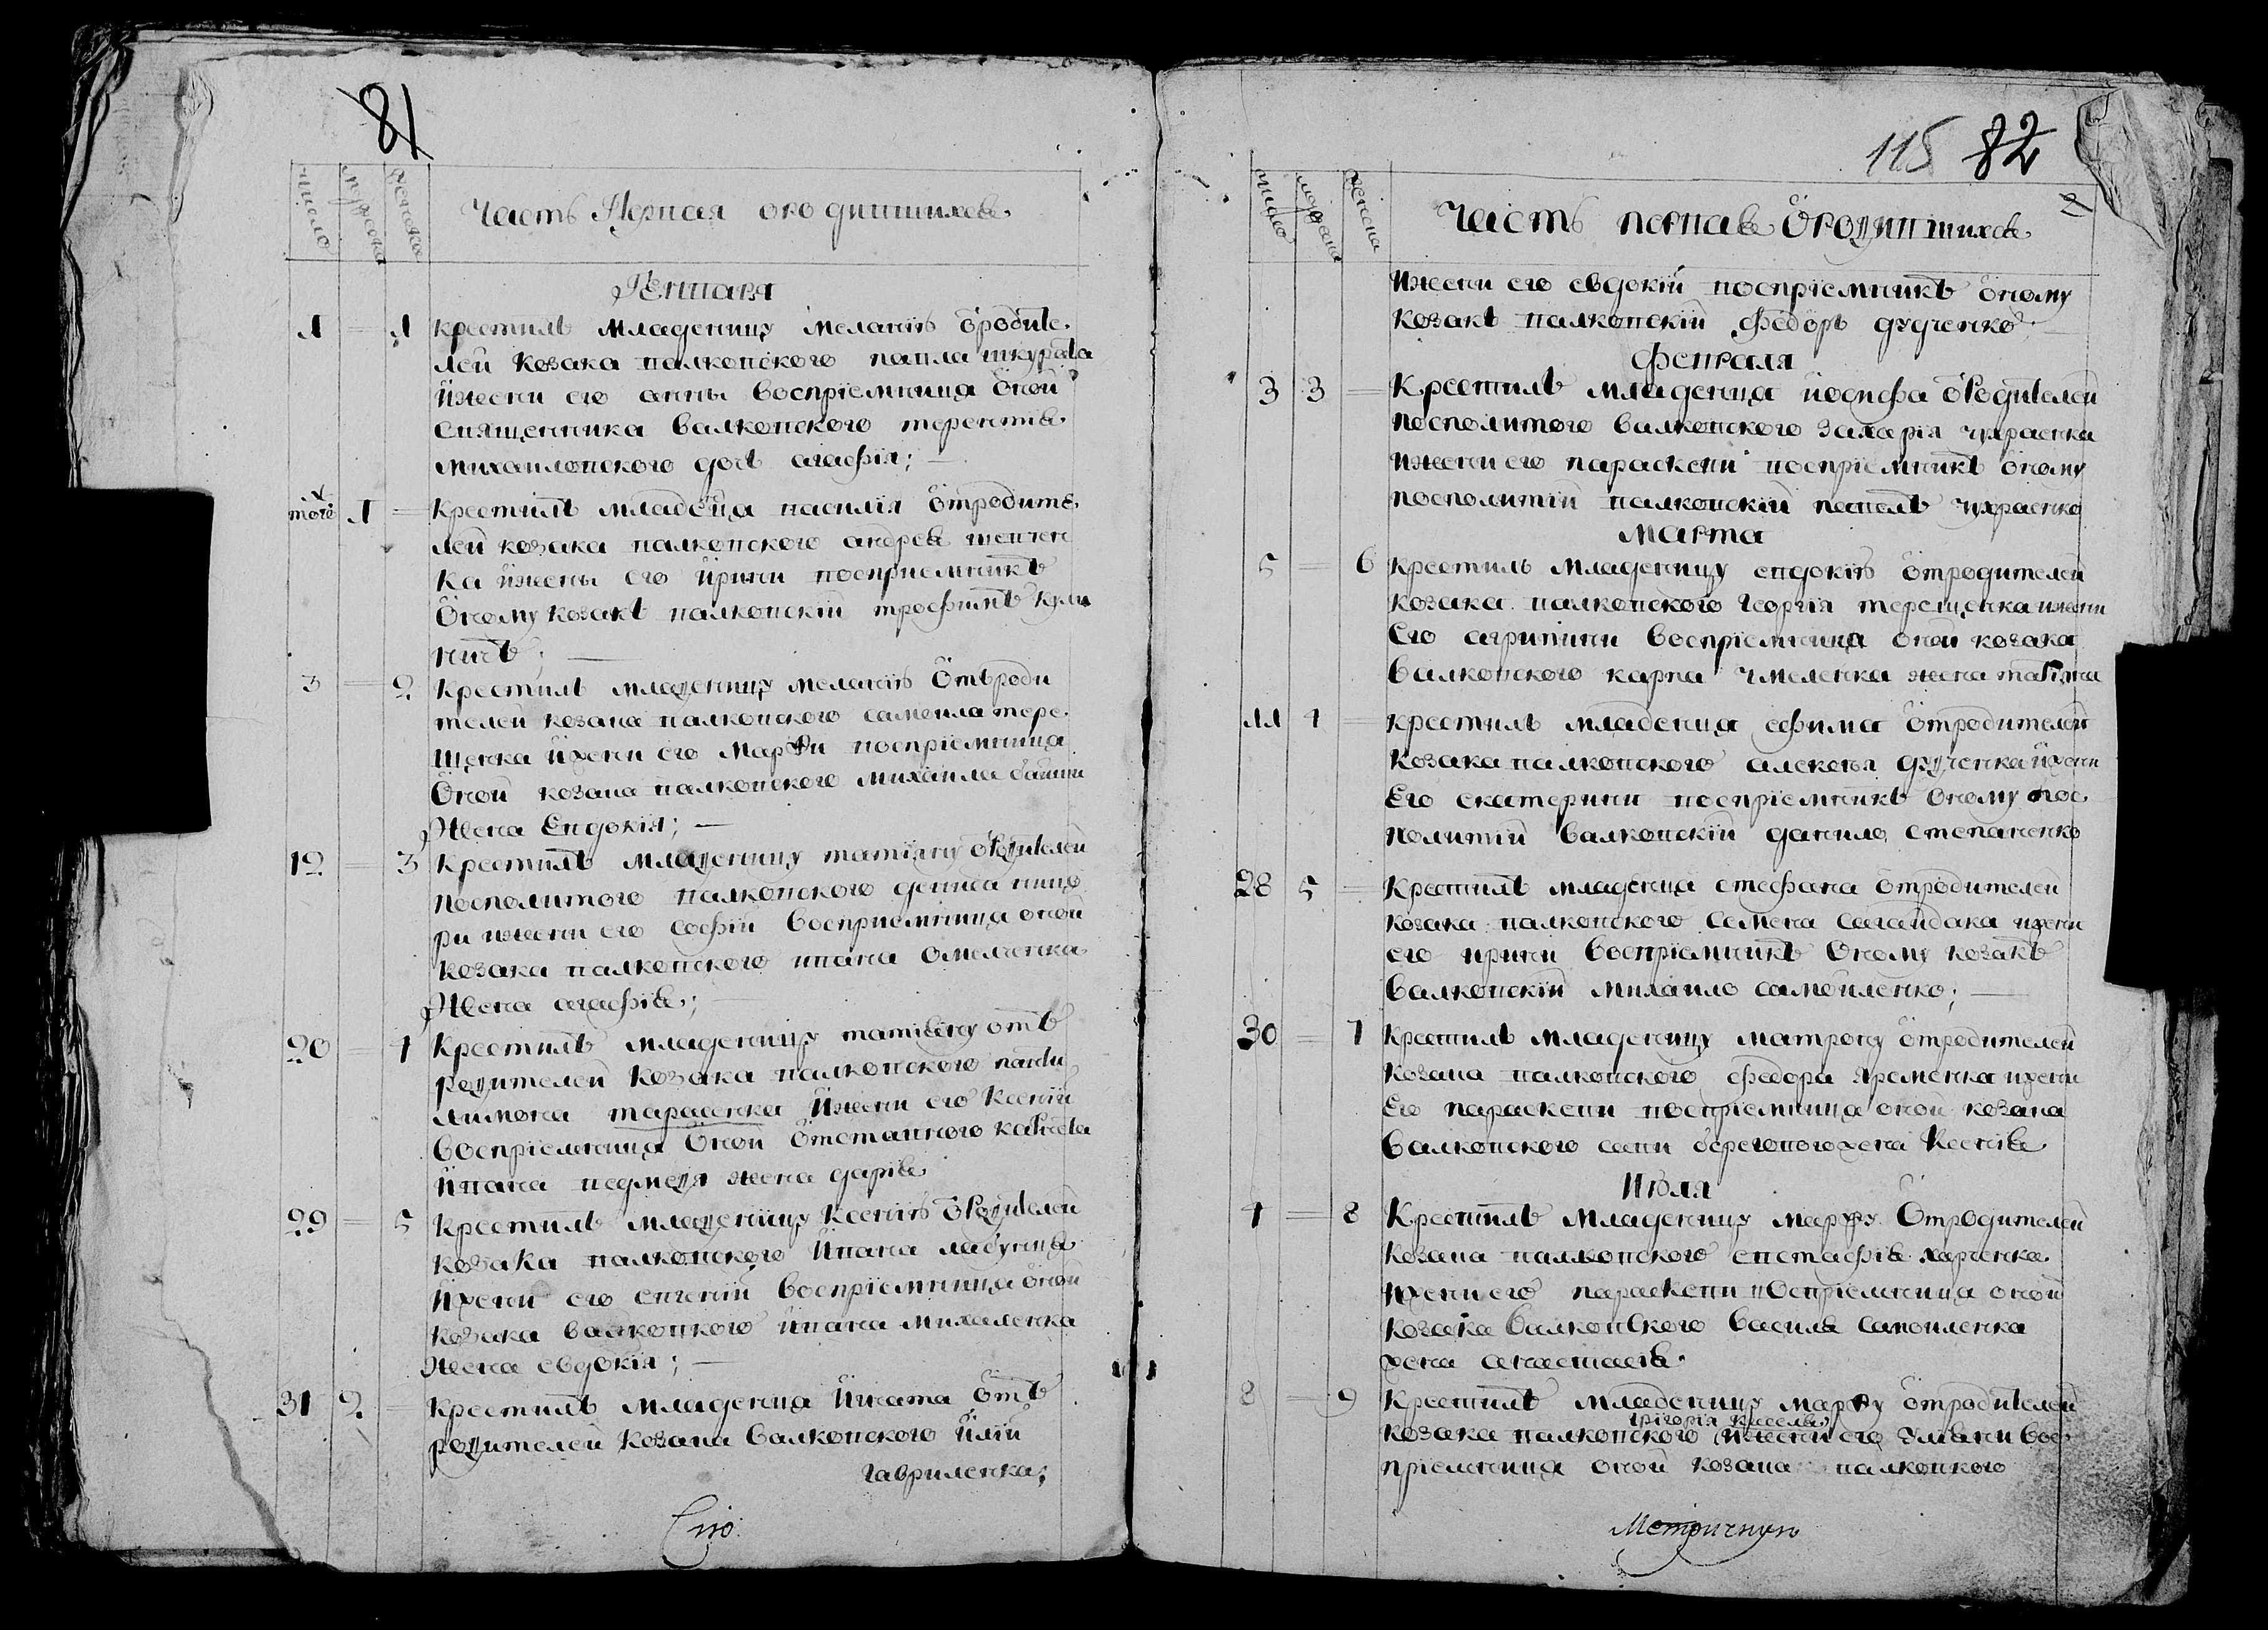 81
число
мужеска
женска
Часть Первая ородившихся
Генваря
1 1 крестилъ младеницу меланію ѿродите
лей козака валковского павла шкурата
ижени его анны восприемница оной
священника валковского терентія
михаиловского дочъ агафія; —
того 1 крестилъ младенца василія ѿтродите
лей козака валковского андрея шевчен
ка ижены его ирини восприемникъ
оному козакъ валковский трофимъ кули
ничъ; —
3 2 крестилъ младеницу меланію ѿтъроди
телей козака валковского самоила тере
щенка ижени его марѳи восприемница
оной козака валковского михаила
жена Евдокия; —
12 3 крестилъ младеницу татияну ѿродителей
посполитого валковского дениса
ри ижени его софій восприемница оной
козака валковского ивана омелченка
жена агафія;
20 4 крестилъ младеницу татияну отъ
родителей козака валковского панте
лимона тарасенка ижени его ксении
восприемница оной ѿтставного капрала
ивана ведмедя жена дария
29 5 крестилъ младеницу ксению ѿродителей
козака валковского ивана
ижени его евгений восприемница оной
козака валковкого ивана михаленка
жена евдокия; —
31 2 крестилъ младенца игната ѿтъ
родителей козака валковского илий
гавриленка;
Сию
115 82
2
число
мужеска
женска
Часть первая ѿродившихся
ижени его евдокий восприемникъ оному
козакъ валковский федоръ дудченко —
февраля
3 3 крестилъ младенца иосифа ѿродителей
посполитого валковского захария чхраенка
ижени его параскеви восприемникъ оному
посполитий валковский павелъ чхраенко
марта
5 6 крестилъ младеницу евдокию ѿтродителей
козака валковского георгия терещенка ижени
его агрипини восприемница оной козака
валковского карпа чмеленка жена татияна
11 4 крестилъ младенца ефима ѿтродителей
козака валковского алексея дудченка ижени
его екатерини восприемникъ оному пос
политий валковский данило степаненко
28 5 крестилъ младенца стефана отродителей
козака валковского семена сагайдака ижени
его ирини восприемникъ оному козакъ
валковский михаило самоиленко; —
30 7 крестилъ младеницу матрону ѿтродителей
козака валковского федора яременка ижени
его параскеви восприемница оной козака
валковского сави берегового жена ксения
Июля
4 8 крестилъ младеницу марфу отродителей
козака валковского евстафия харченка
ижени его параскеви восприемница оной
козака валковского василя самоиленка
жена анастасия.
8 9 крестилъ младеницу марѳу ѿтродителей
григория киселя
козака валковского ижени его улияни вос
приемница оной козака валковкого
Метричную